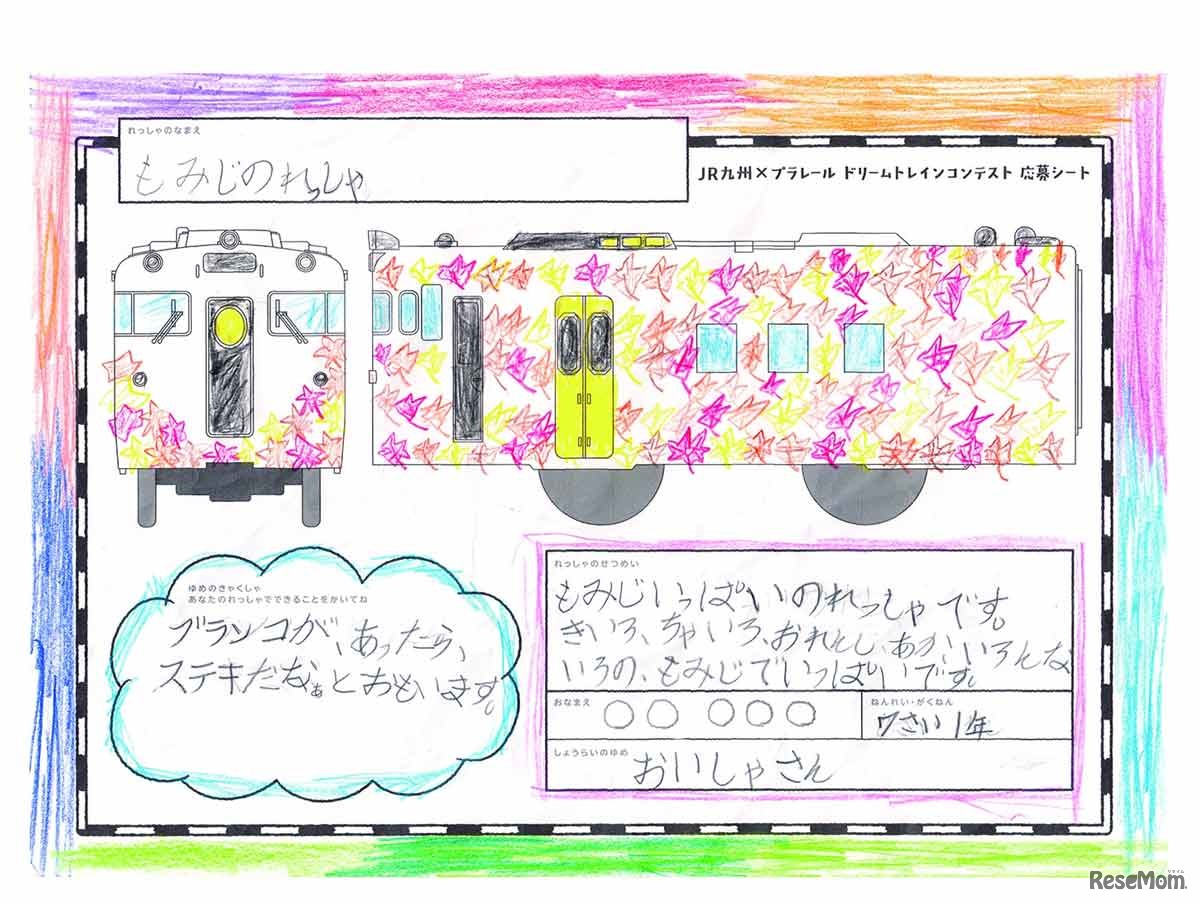 れっしゃのなまえ
もみじのれっしゃ
JR九州×プラレール ドリームトレインコンテスト 応募シート
ゆめのきゃくしゃ
あなたのれっしゃでできることをかいてね
ブランコが、あったら、
ステキだなぁとおもいます。
れっしゃのせつめい
もみじいっぱいのれっしゃです。
きいろ、ちゃいろ、おれんじ、あか、いろんな
いろの、もみじでいっぱいです。
おなまえ ○○ ○○○
ねんれい・がくねん
7さい 1年
しょうらいのゆめ
おいしゃさん
リセマム
ReseMom.